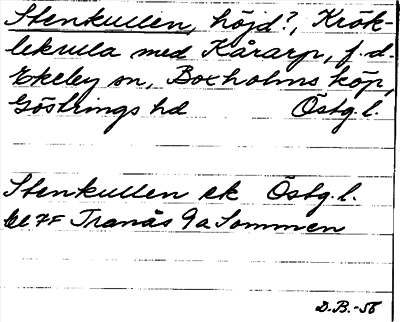 Stenkullen, höjd?, Krök-
lekulla med Kårarp, f.d.
Ekeby sn, Boxholms köp,
Göstrings hd Östg.l.
Stenkullen ek Östg.l.
bl 7F Tranås 9a Sommen
D.B.-56